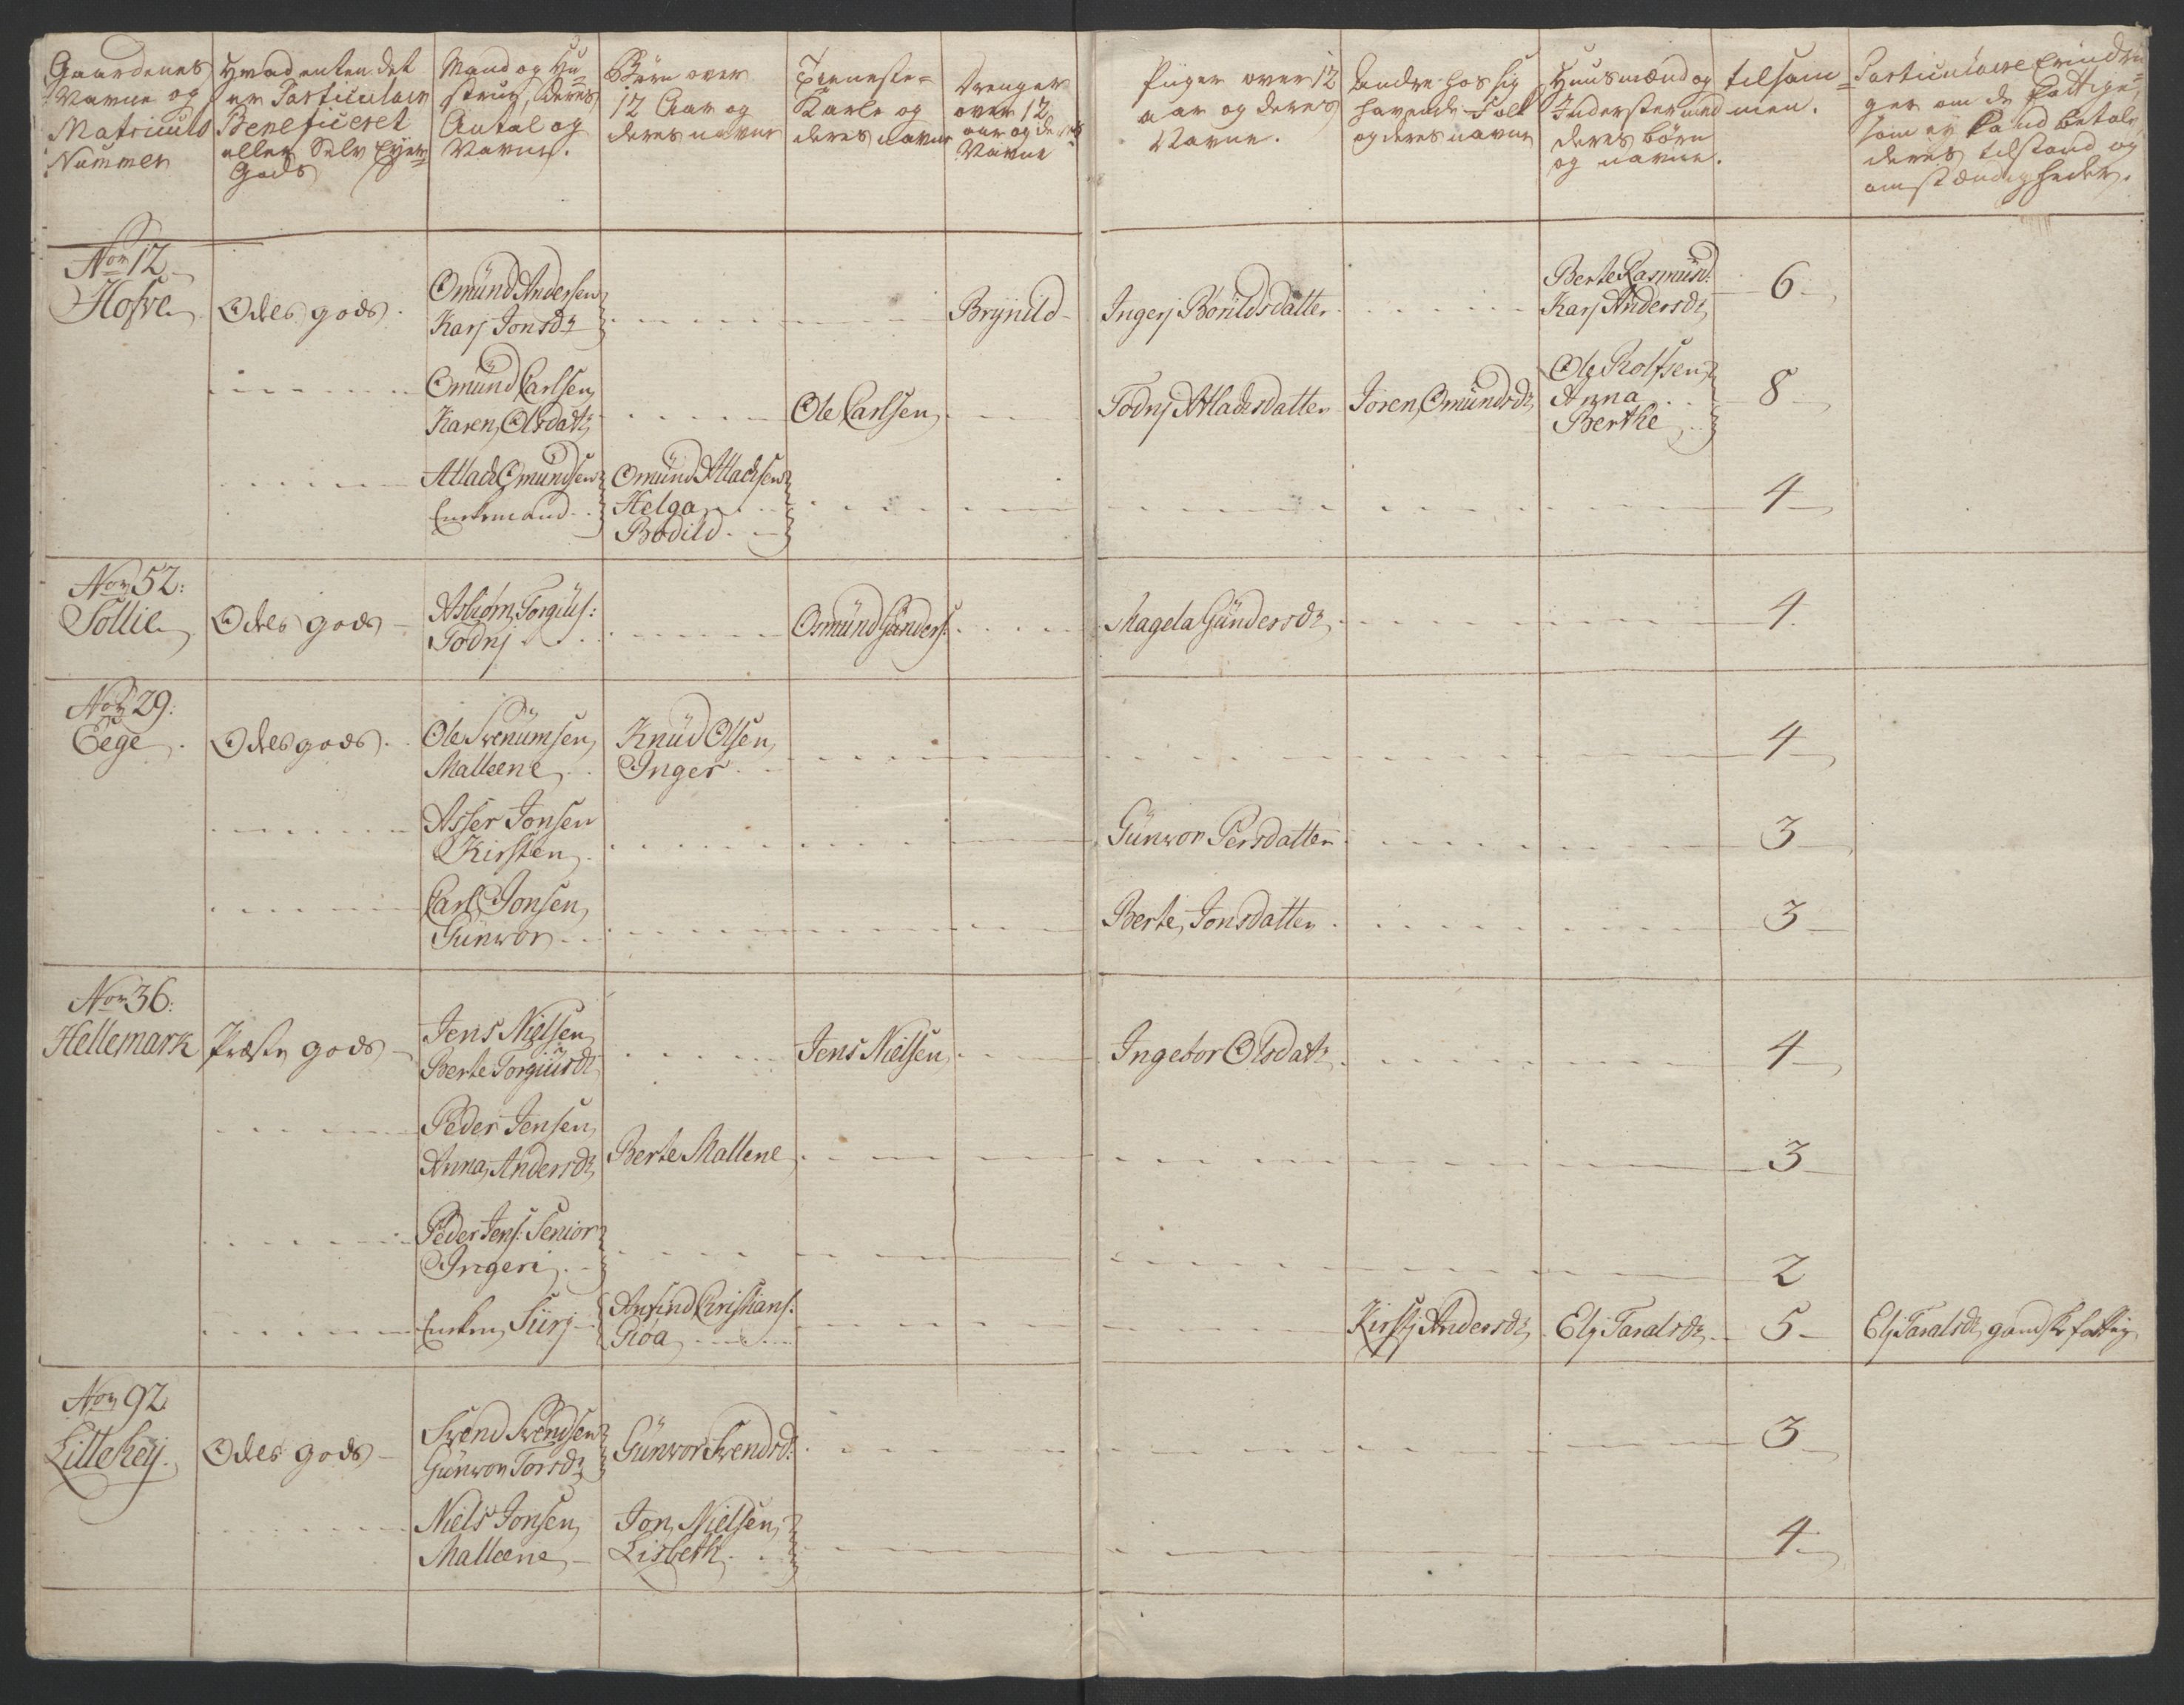 Gaardenes Navne og Matriculs Nummer
Hvad enten det er Particulair Beneficeret eller Selv Eyer Gods
Mand og Hustrue, deres Antal og Navne.
Børn over 12 Aar og deres navne
Tieneste-Karle og deres navne
Drenger over 12 aar og deres Navne
Piiger over 12 aar og deres Navne.
Andre hos sig havende Folk og deres navne
Huusmænd og Inderster med deres börn og navne.
tilsammen.
Particulaire Erindringer om de fattige, som ey kand betale, deres tilstand og omstændigheder.
Nor 12
Hofve
Odels gods.
Omünd Andersen
Karj Jonsdr
Brÿnild
Ingerj Borildsdatter
Berte Rasmüsd:
Karj Andersdr
6
Omünd Carlsen
Karen Olsdatr
Ole Carlsen
Todnj Atlachsdatter
Joren Omündsdr
Ole Rolfsen
Anna
Berthe
8
Atlach Omundsen
Enkemand
Omünd Atlachsen
Helga
Bodild
4
Nor 52:
Sollie
Odels gods
Asbiörn Torgiüs:
Todnj
Osmünd Günders:
Magela Gündersdr
4
Nor 29:
Eege
Odels gods.
Ole Svenümsen
Malleene
Knüd Olsen
Inger
4
Asser Jonsen
Kirsten
Günvor Persdatter
3
Carl Jonsen
Günvor
Berte Jonsdatter
3
Nor 36:
Hellemark
Præste gods
Jens Nielsen
Berte Torgiüsdr
Jens Nielsen
Ingebor Olsdatr
4
Peder Jensen
Anna Andersdr
Berte Mallene
3
Peder Jens: Senior
Ingeri
2
Enken Siirj
Anfind Christians:
Gioa
Kirstj Andersdr
Elj Taralsdr
5
Elj Taralsdr gandske fattig
Nor 92
Littehey.
Odels gods
Svend Svendsen
Günvor Torsdr
Günvor Svendsd:
3
Niels Jonsen
Malleene
Jon Nielsen
Lisbeth
4